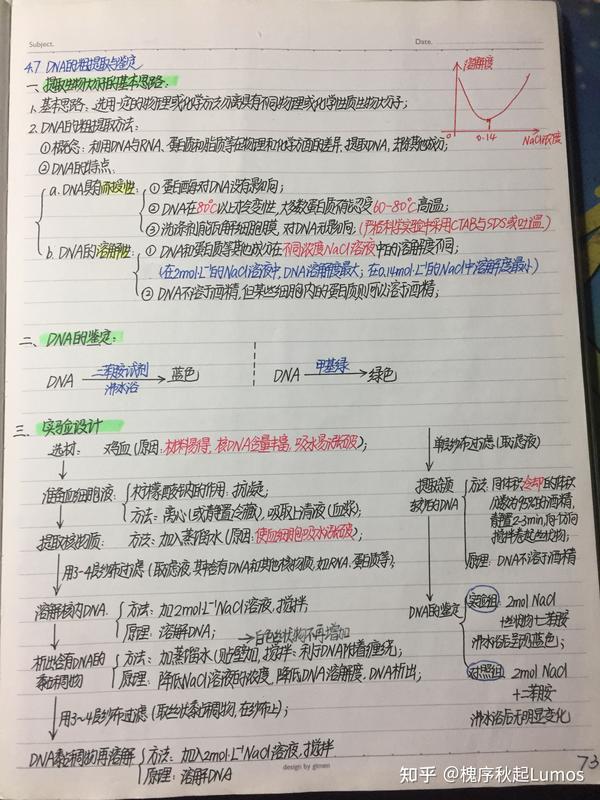 Subject.
Date.
4.7 DNA的粗提取与鉴定
一、提取生物大分子的基本思路:
1. 基本思路: 选用一定的物理或化学方法分离具有不同物理或化学性质生物大分子;
2. DNA的粗提取方法:
① 概念: 利用DNA与RNA、蛋白质和脂质等在物理和化学方面的差异, 提取DNA, 去除其他成分;
② DNA的特点:
a. DNA具有耐受性:
① 蛋白酶对DNA没有影响;
② DNA在80℃以上才会变性, 大多数蛋白质不能忍受60-80℃高温;
③ 洗涤剂能瓦解细胞膜, 对DNA无影响; (严格科学实验中采用CTAB与SDS或吐温)
b. DNA的溶解性:
① DNA和蛋白质等其他成分在不同浓度NaCl溶液中的溶解度不同;
(在2mol·L⁻¹的NaCl溶液中, DNA溶解度最大; 在0.14mol·L⁻¹的NaCl中溶解度最小)
② DNA不溶于酒精, 但某些细胞内的蛋白质则可以溶于酒精;
溶解度
0
0.14
NaCl浓度
二、DNA的鉴定:
DNA 二苯胺试剂 沸水浴 蓝色
DNA 甲基绿 绿色
三、实验设计
选材: 鸡血 (原因: 材料易得, 核DNA含量丰富, 吸水易涨破);
准备血细胞液:
柠檬酸钠的作用: 抗凝;
方法: 离心(或静置冷藏), 吸取上清液(血浆)
提取核物质: 方法: 加入蒸馏水 (原因: 使血细胞吸水涨破);
用3-4层纱布过滤 (取滤液, 其中含有DNA和其他核物质, 如RNA、蛋白质等);
溶解核内DNA
方法: 加2mol·L⁻¹NaCl溶液, 搅拌;
原理: 溶解DNA;
→白色丝状物不再增加
析出含有DNA的黏稠物
方法: 加蒸馏水(贴壁加, 搅拌: 利于DNA附着缠绕);
原理: 降低NaCl溶液的浓度, 降低DNA溶解度, DNA析出;
用3~4层纱布过滤 (取丝状黏稠物, 在纱布上);
DNA黏稠物再溶解
方法: 加入2mol·L⁻¹NaCl溶液, 搅拌
原理: 溶解DNA
单层纱布过滤(取滤液)
提取杂质较少的DNA
方法: 同体积冷却的体积分数为95%的酒精, 静置2-3min, 同一方向搅拌卷起丝状物;
原理: DNA不溶于酒精
DNA的鉴定
实验组: 2mol NaCl
+丝状物+二苯胺
沸水浴后呈现蓝色;
对照组: 2mol NaCl
+二苯胺
沸水浴后无明显变化
design by gtmen
73
知乎 @槐序秋起Lumos